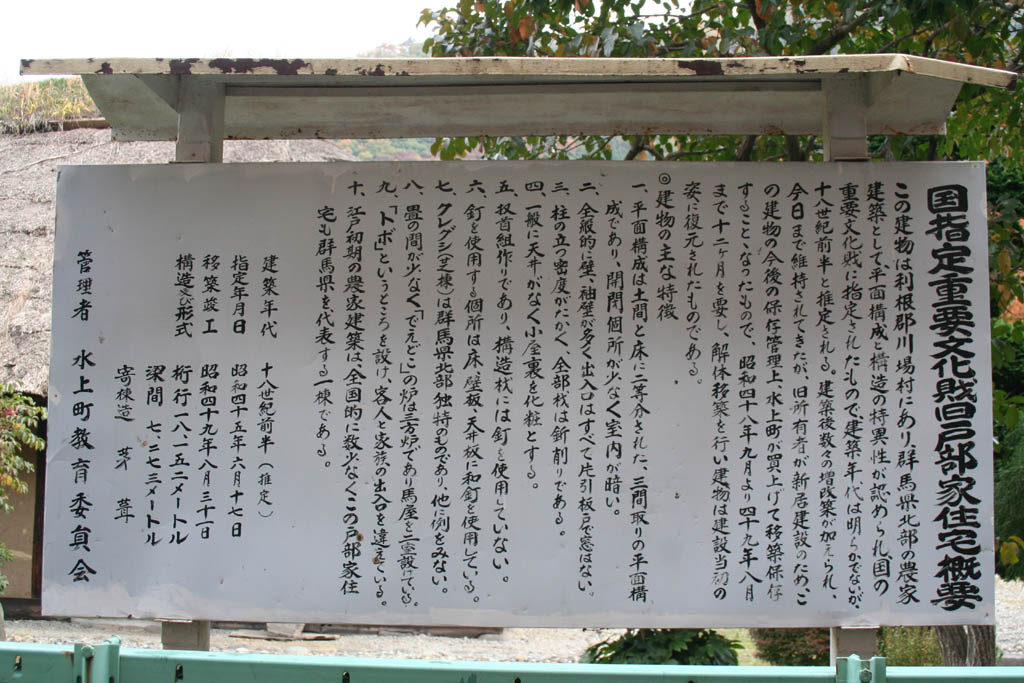 国指定重要文化財旧戸部家住宅概要
この建物は利根郡川場村にあり群馬県北部の農家
建築として平面構成と構造の特異性が認められ国の
重要文化財に指定されたもので建築年代は明らかでないが、
十八世紀前半と推定される。建築後数々の増改築が加えられ、
今日まで維持されてきたが、旧所有者が新居建設のため、こ
の建物の今後の保存管理上水上町が買上げて移築保存
することゝなったもので、昭和四十八年九月より四十九年八月
まで十二ヶ月を要し、解体移築を行い建物は建設当初の
姿に復元されたものである。
◎建物の主な特徴
一、平面構成は土間と床に二等分された、三間取りの平面構
成であり、開閉個所が少なく室内が暗い。
二、全般的に壁、袖壁が多く出入口はすべて片引板戸で窓はない。
三、柱の立つ密度がたかく、全部材は釿削りである。
四、一般に天井がなく小屋裏を化粧とする。
五、扠首組作りであり、構造材には釘を使用していない。
六、釘を使用する個所は床、壁板、天井板に和釘を使用している。
七、クレグシ(芝棟)は群馬県北部独特のものであり、他に例をみない。
八、畳の間が少なく、「でえどこ」の炉は三方炉であり馬屋を二室設けている。
九、「トボ」というところを設け、客人と家族の出入口を違えている。
十、江戸初期の農家建築は全国的に数少なくこの戸部家住
宅も群馬県を代表する一棟である。
建築年代 十八世紀前半(推定)
指定年月日 昭和四十五年六月十七日
移築竣工 昭和四十九年八月三十一日
構造及び形式 桁行一八、一五二メートル
梁間 七、二七三メートル
寄棟造 茅葺
管理者 水上町教育委員会